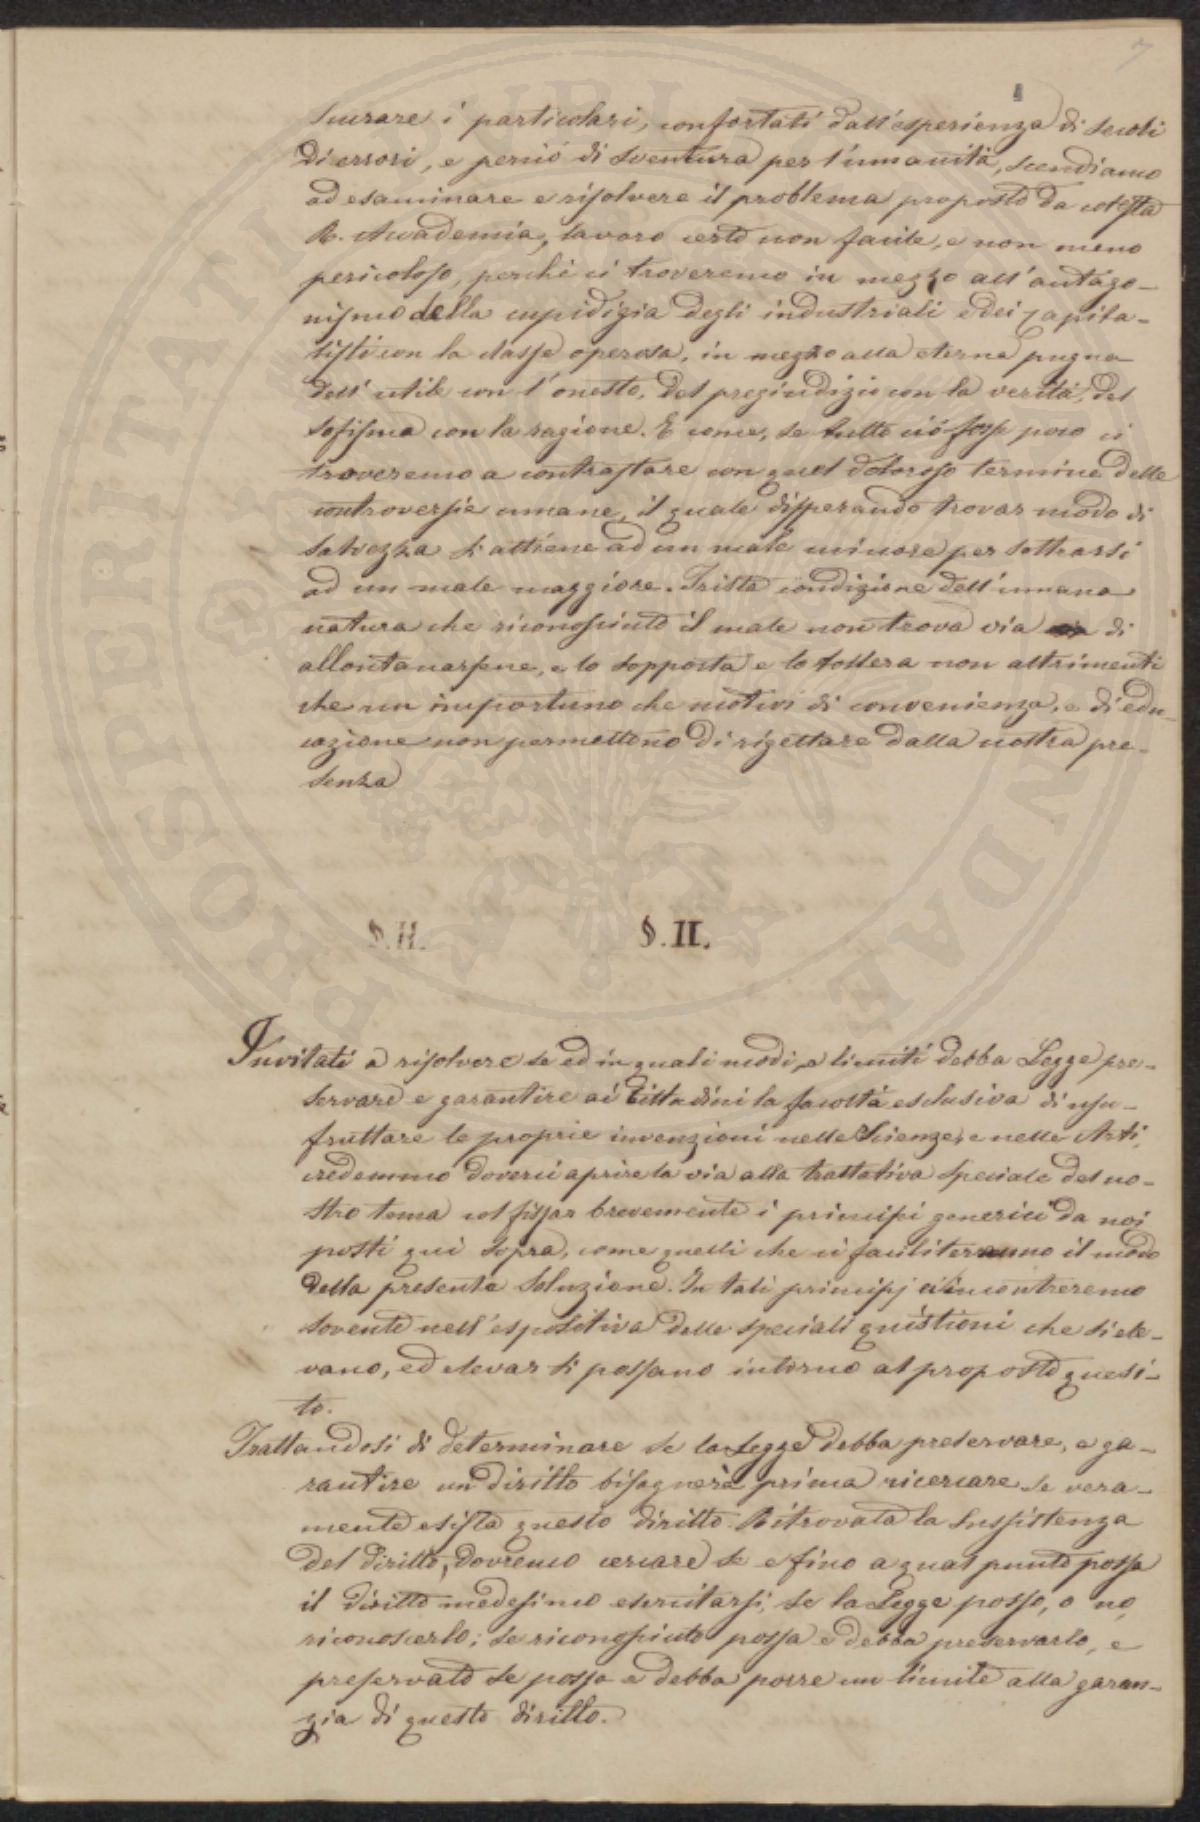 7
scurare i particolari, confortati dall'esperienza di secoli
di errori, e perciò di sventura per l'umanità, scendiamo
ad esaminare e risolvere il problema proposto da cotesta
R. Accademia, lavoro certo non facile, e non meno
pericoloso, perchè ci troveremo in mezzo all'antago-
nismo della cupidigia degli industriali e dei capita-
listi con la classe operosa, in mezzo alla eterna pugna
dell'utile con l'onesto, del pregiudizio con la verità, del
sofisma con la ragione. E come, se tutto ciò fosse poco ci
troveremo a contrastare con quel doloroso termine delle
controversie umane, il quale disperando trovar modo di
salvezza si attiene ad un male minore per sottrarsi
ad un male maggiore. Trista condizione dell'umana
natura che riconosciuto il male non trova via di
allontanarsene, e lo sopporta e lo tollera non altrimenti
che un importuno che motivi di convenienza, e di edu-
cazione non permettono di rigettare dalla nostra pre-
senza
§. II. §. II.
Invitati a risolvere se ed in quali modi, e limiti debba Legge pre-
servare e garantire ai Cittadini la facoltà esclusiva di usu-
fruttare le proprie invenzioni nelle Scienze, e nelle Arti,
credemmo doverci aprire la via alla trattativa speciale del no-
stro tema col fissar brevemente i principi generici da noi
posti qui sopra, come quelli che ci faciliteranno il modo
della presente soluzione. In tali principj c'incontreremo
sovente nell'espositiva delle speciali quistioni che si ele-
vano, ed elevar si possano intorno al proposto quesi-
to.
Trattandosi di determinare se la Legge debba preservare, e ga-
rantire un diritto bisognerà prima ricercare se vera-
mente esista questo diritto. Ritrovata la sussistenza
del diritto, dovremo cercare se e fino a qual punto possa
il diritto medesimo esercitarsi; se la Legge possa, o no,
riconoscerlo; se riconosciuto possa e debba preservarlo, e
preservato se possa e debba porre un limite alla garan-
zia di questo diritto.
PROSPERITATI PUBLICAE AUGENDAE